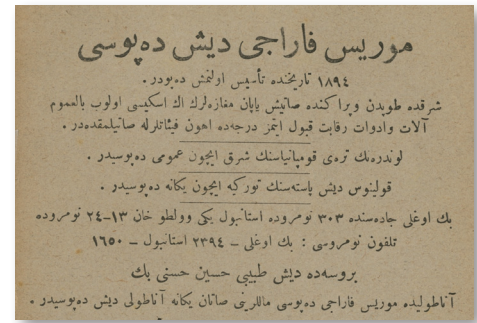 موریس فاراجی دیش ده‌پوسی
١٨٩٤ تاریخنده تأسیس اولنمش ده‌پودر.
شرقده طوپدن و پراکنده صاتیش یاپان مغازه‌لرك اك اسكیسی اولوب بالعموم
آلات وادوات رقابت قبول ایتمز درجه‌ده اهون فیئاتلرله صاتیلمقده‌در.
لوندره‌نك تره‌ی قومپانیاسنك شرق ایچون عمومی ده‌پوسیدر.
قولینوس دیش پاسته‌سنك تورکیه ایچون یکانه ده‌پوسیدر.
بك اوغلی جاده‌سنده ٣٠٣ نومروده استانبول یکی وولطو خان ١٣-٢٤ نومروده
تلفون نومروسی : بك اوغلی ـ ٢٣٩٤ استانبول ـ ١٦٥٠
بروسه‌ده دیش طبیبی حسین حسنی بك
آناطولیده موریس فاراجی ده‌پوسی ماللرینی صاتان یکانه آناطولی دیش ده‌پوسیدر.